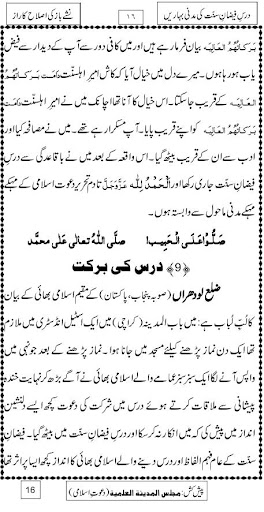 درسِ فیضانِ سنّت کی مدنی بہاریں ١٦ نشے باز کی اصلاح کا راز
بَرَکَاتُہُمُ الْعَالِیَہ بیان فرمار ہے ہیں اور میں کافی دور سے آپ کے دیدار سے فیض
یاب ہورہا ہوں۔ میرے دل میں خیال آیا کہ کاش امیرِ اہلسنّت دَامَتْ بَرَکَاتُہُمُ
الْعَالِیَہ کے قریب جا سکتا۔ اس خیال کا آنا تھا اچانک میں نے امیرِ اہلسنّت دَامَتْ
بَرَکَاتُہُمُ الْعَالِیَہ کو اپنے قریب پایا۔ آپ مسکرار ہے تھے۔ میں نے مصافحہ کیا اور
ادب سے ان کے قریب بیٹھ گیا۔ اس واقعہ کے بعد میں نے باقاعدگی سے درسِ
فیضانِ سنّت جاری رکھا اور اَلْحَمْدُ لِلّٰہ عَزَّوَجَلَّ تادمِ تحریر دعوتِ اسلامی کے مہکے
مہکے مدنی ماحول سے وابستہ ہوں۔
صَلُّوْا عَلَی الْحَبِیْب! صلَّی اللّٰہُ تعالٰی علٰی محمَّد
﴿9﴾ درس کی برکت
ضلع لودھراں (صوبہ پنجاب، پاکستان) کے مقیم اسلامی بھائی کے بیان
کا لُبِّ لُباب ہے: میں باب المدینہ (کراچی) میں ایک اسٹیل انڈسٹری میں ملازم
تھا ایک دن نماز پڑھنے کیلئے مسجد میں جانا ہوا۔ نماز پڑھنے کے بعد جونہی میں
واپس آنے لگا ایک سبز سبز عمامے والے اسلامی بھائی نے آگے بڑھ کر نہایت خندہ
پیشانی سے ملاقات کرتے ہوئے درس میں شرکت کی دعوت کچھ ایسے دلنشین
انداز میں پیش کی کہ میں انکار نہ کر سکا اور درسِ فیضانِ سنّت میں بیٹھ گیا۔ فیضانِ
سنّت کے عام فہم الفاظ اور درس دینے والے اسلامی بھائی کا انداز کچھ ایسا پُر اثر تھا
پیش کش: مجلس المدینۃ العلمیۃ (دعوتِ اسلامی) 16